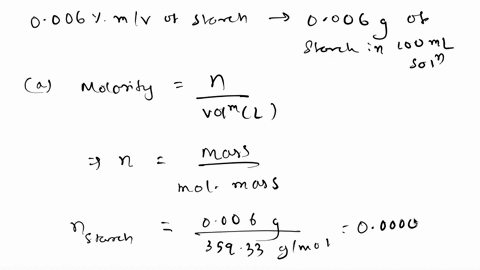 0.006 %. m/v of starch → 0.006 g of
starch in 100 mL
solⁿ
(a) Molority = n / volᵐ(L)
⇒ n = mass / mol. mass
n starch = 0.006 g / 359.33 g/mol = 0.0000